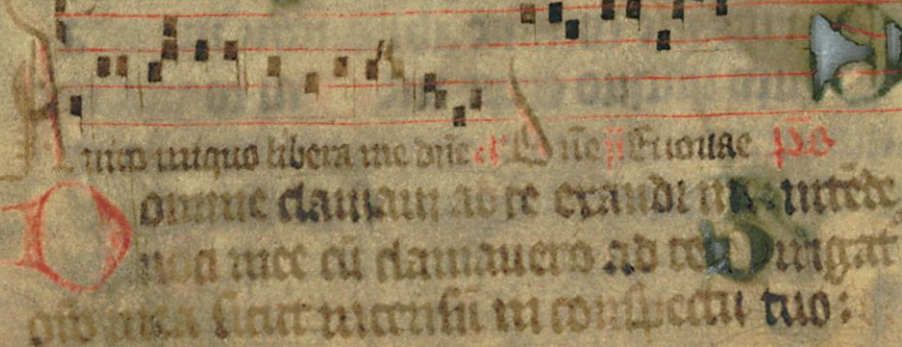 A viro iniquo libera me dñe ct̉ Dñe ij Euouae ps
Domine clamaui ad te exaudi me intēde
uoci mee cū clamauero ad te Dirigat
oro mea sicut incensū in conspectu tuo: